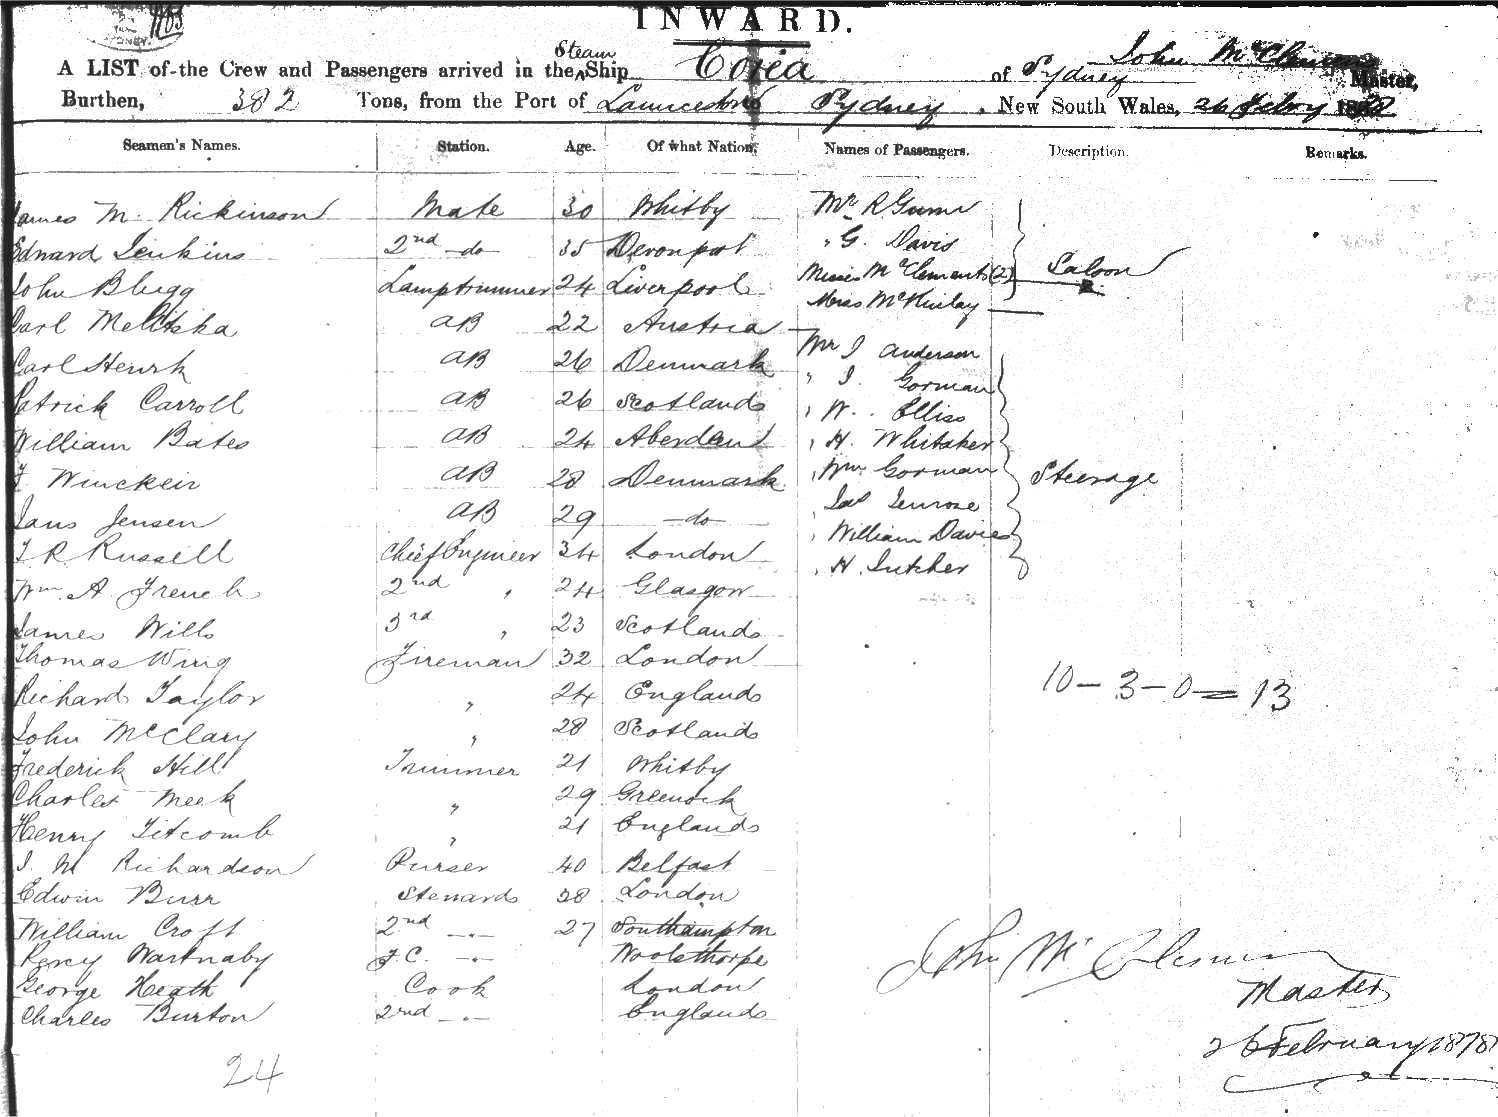 INWARD.
Steam
John McClemens
A LIST of the Crew and Passengers arrived in the Ship of Sydney Master,
Burthen, 382 Tons, from the Port of Launceston Sydney, New South Wales, 26 Febry 1878
Seamen's Names. Station. Age. Of what Nation. Names of Passengers. Description. Remarks.
James M. Rickinson Mate 30 Whitby Mr R
Edward Jenkins 2nd do 35 Devonport " G. Davis
John Blugg Lamptrimmer 24 Liverpool Misses McClements (2) Saloon
Carl 22 AB Austria McKinlay
Carl Henrk AB 26 Denmark Mr J Anderson
" J. Gorman
Patrick Carroll AB 26 Scotland " W. Elliss
William Bates AB 24 Aberdeen " H. Whitaker
F Winckeir AB 28 Denmark " Wm Gorman Steerage
Jans Jensen AB 29 do Penrose
" William Davies
T R Russell Chief Engineer 34 London " H. Butcher
Wm. A French 2nd " 24 Glasgow
James Wills 3rd " 23 Scotland
Thomas Wing Fireman 32 London
Richard Taylor " 24 England 10-3-0=13
John McClary " 28 Scotland
Frederick Hill Trimmer 21 Whitby
Charles Meek " 29 Greenock
Henry Titcomb " 21 England
J. M Richardson Purser 40 Belfast
Edwin Burr Steward 38 London
William Croft 2nd -"- 27 Southampton
Percy Wartnaby F.C. -"- Woolsthorpe John McClemens
George Heath Cook London Master
Charles Burton 2nd -"- England
26 February 1878
24